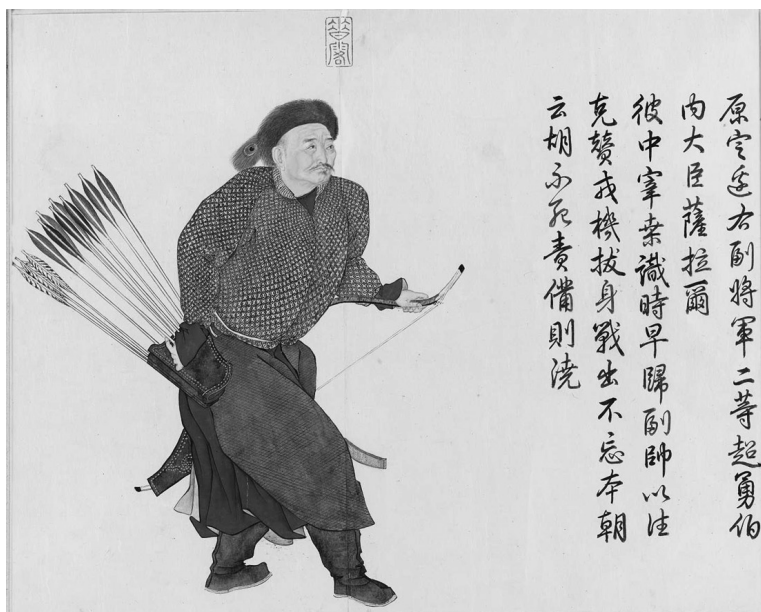 原定邊右副將軍二等超勇伯
内大臣薩拉爾
彼中宰桒識時早歸副帥以往
克贊戎機拔身戰出不忘本朝
云胡不死責備則澆